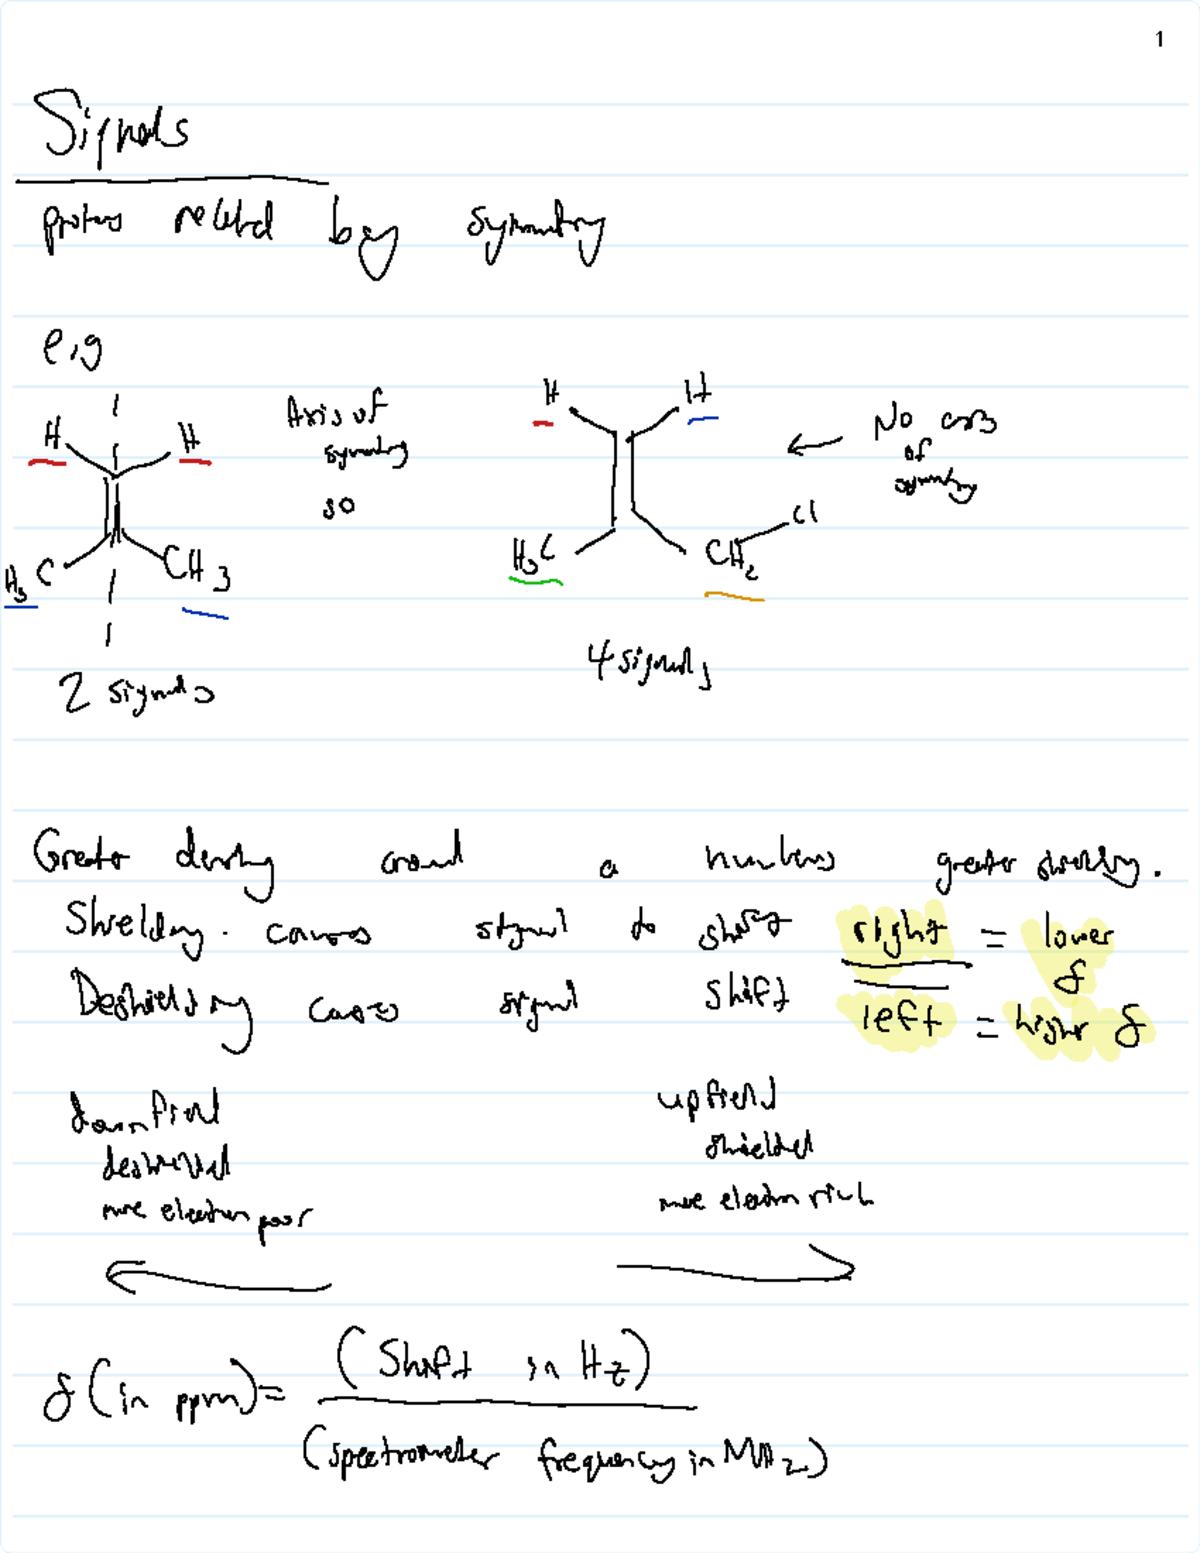 1
Signals
protons related by symmetry
e.g
H H
H3C CH3
Axis of
symmetry
so
2 signals
H H
H3C CH2 Cl
No axis
of
symmetry
4 signals
Greater density around a nucleus greater shielding.
Shielding. causes signal to shift right = lower δ
Deshielding causes signal shift left = higher δ
downfield
deshielded
more electron poor
upfield
shielded
more electron rich
δ (in ppm) = (Shift in Hz)
(spectrometer frequency in MHz)